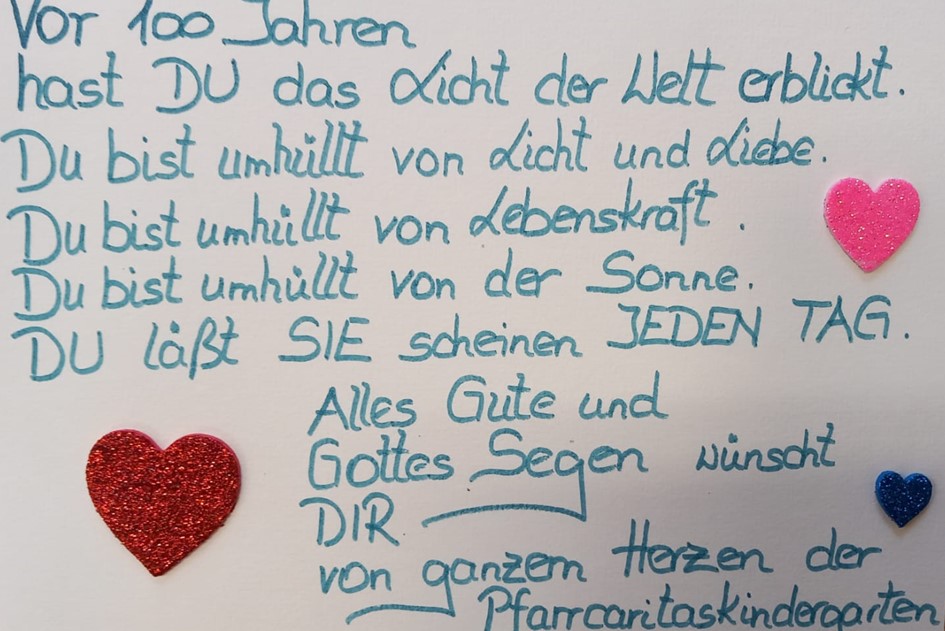 Vor 100 Jahren
hast DU das Licht der Welt erblickt.
Du bist umhüllt von Licht und Liebe.
Du bist umhüllt von Lebenskraft.
Du bist umhüllt von der Sonne.
DU läßt SIE scheinen JEDEN TAG.
Alles Gute und
Gottes Segen wünscht
DIR
von ganzem Herzen der
Pfarrcaritaskindergarten